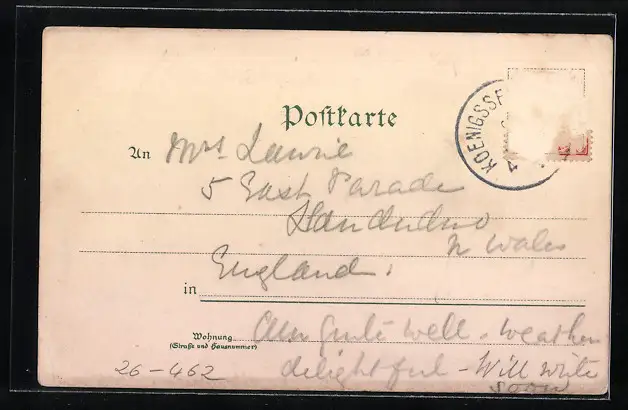 Postkarte
KOENIGSSE
An Mrs Laurie
5 East Parade
Llandudno
N Wales
England.
in
Wohnung
(Straße und Hausnummer)
Am quite well. Weather
delightful - Will write
soon
26-462